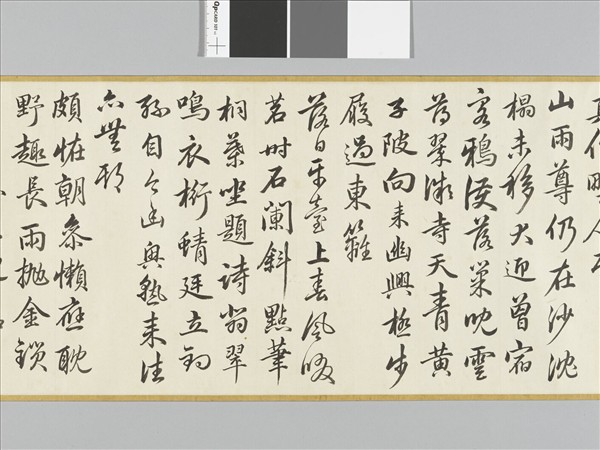 真作野人居
山雨尊仍在沙沈
榻未移犬迎曾宿
客鴉護落巢兒雲
薄翠微寺天青黄
子陂向來幽興極步
屐過東籬
落日平臺上春風啜
茗時石闌斜點筆
桐葉坐題詩翡翠
鳴衣桁蜻蜓立釣
絲自今幽興熟来往
亦無期
頗怪朝參懶應耽
野趣長雨拋金鎖